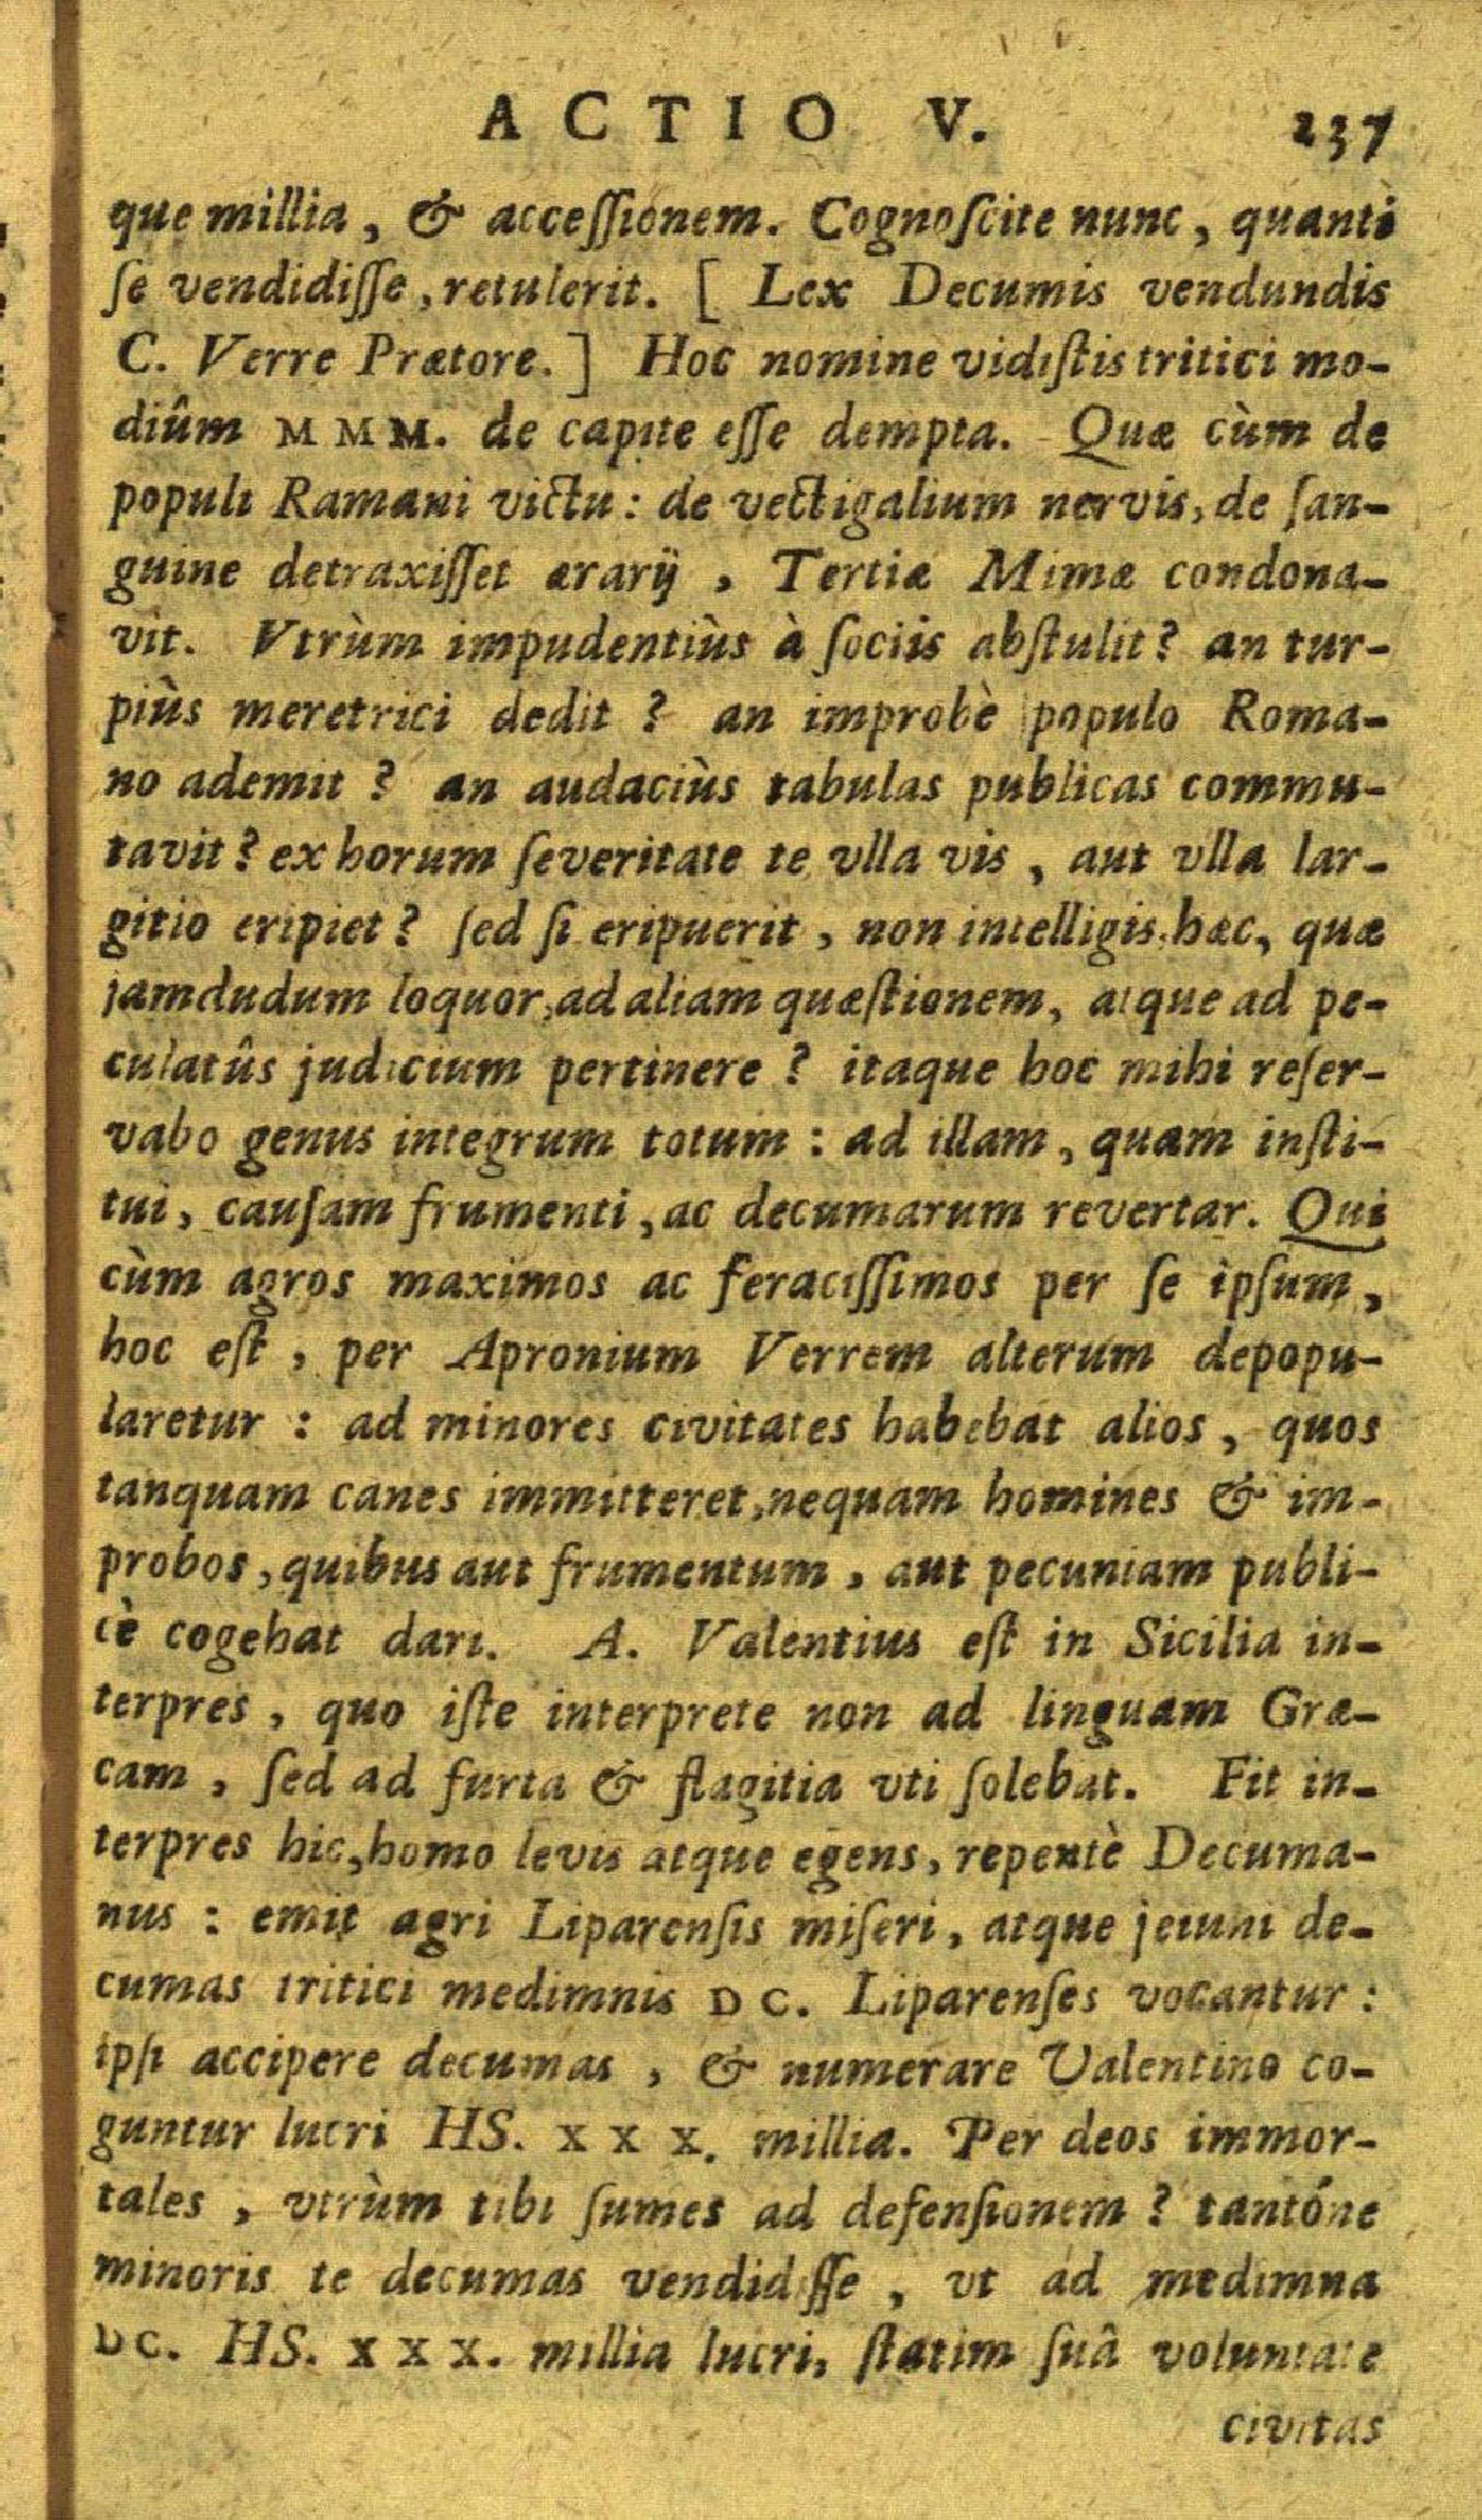 ACTIO V. 237
que millia, & acceſſionem. Cognoſcite nunc, quanti
ſe vendidiſſe, retulerit. [ Lex Decumis vendundis
C. Verre Prætore. ] Hoc nomine vidiſtis tritici mo-
diûm MMM. de capite eſſe dempta. Quæ cùm de
populi Ramani victu: de vectigalium nervis, de ſan-
guine detraxiſſet ærarij, Tertiæ Mimæ condona-
vit. Vtrùm impudentiùs à ſociis abſtulit? an tur-
piùs meretrici dedit? an improbè populo Roma-
no ademit? an audaciùs tabulas publicas commu-
tavit? ex horum ſeveritate te vlla vis, aut vlla lar-
gitio eripiet? ſed ſi eripuerit, non intelligis hæc, quæ
jamdudum loquor, ad aliam quæſtionem, atque ad pe-
culatûs judicium pertinere? itaque hoc mihi reſer-
vabo genus integrum totum: ad illam, quam inſti-
tui, cauſam frumenti, ac decumarum revertar. Qui
cùm agros maximos ac feraciſſimos per ſe ipſum,
hoc eſt, per Apronium Verrem alterum depopu-
laretur: ad minores civitates habebat alios, quos
tanquam canes immitteret, nequam homines & im-
probos, quibus aut frumentum, aut pecuniam publi-
cè cogebat dari. A. Valentius eſt in Sicilia in-
terpres, quo iſte interprete non ad linguam Græ-
cam, ſed ad furta & flagitia vti ſolebat. Fit in-
terpres hic, homo levis atque egens, repentè Decuma-
nus: emit agri Liparenſis miſeri, atque jeiuni de-
cumas tritici medimnis DC. Liparenſes vocantur:
ipſi accipere decumas, & numerare Valentino co-
guntur lucri HS. XXX. millia. Per deos immor-
tales, vtrùm tibi ſumes ad defenſionem? tantóne
minoris te decumas vendidiſſe, vt ad medimna
DC. HS. XXX. millia lucri, ſtatim ſuâ voluntate
civitas